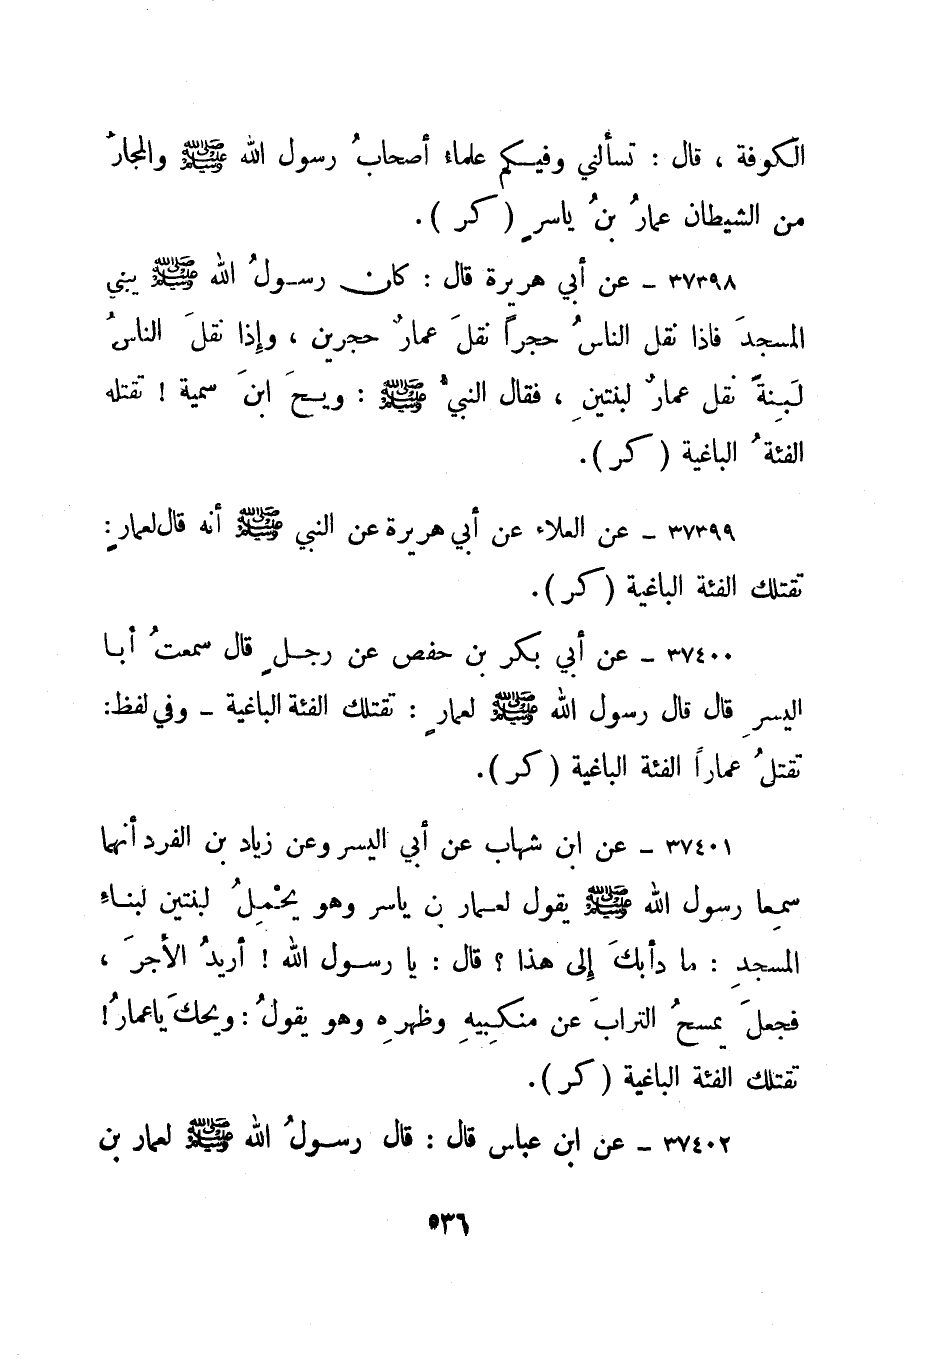 الكوفة ، قال : تسألني وفيكم علماء أصحابُ رسول الله ﷺ والمجارُ
من الشيطان عمارُ بنُ ياسرٍ ( كر ) .
٣٧٣٩٨ ـ عن أبي هريرة قال : كان رسولُ الله ﷺ يبني
المسجدَ فاذا نقل الناسُ حجراً نقلَ عمارٌ حجرين ، وإذا نقلَ الناسُ
لَبِنةً نقل عمارٌ لبنتينِ ، فقال النبيُّ ﷺ : ويحَ ابنَ سمية ! تقتله
الفئةُ الباغية ( كر ) .
٣٧٣٩٩ ـ عن العلاء عن أبي هريرة عن النبي ﷺ أنه قال لعمارٍ :
تقتلك الفئة الباغية ( كر ) .
٣٧٤٠٠ ـ عن أبي بكر بن حفص عن رجلٍ قال سمعتُ أبا
اليسرِ قال قال رسول الله ﷺ لعمارٍ : تقتلك الفئة الباغية ـ وفي لفظ :
تقتلُ عماراً الفئة الباغية ( كر ) .
٣٧٤٠١ ـ عن ابن شهاب عن أبي اليسر وعن زياد بن الفرد أنهما
سمعا رسول الله ﷺ يقول لعمار بن ياسر وهو يحْمِلُ لبنتين لبناء
المسجدِ : ما دأبكَ إلى هذا ؟ قال : يا رسول الله ! أريدُ الأجرَ ،
فجعلَ يمسحُ الترابَ عن منكبيهِ وظهرِه وهو يقولُ : ويحكَ ياعمارُ !
تقتلك الفئة الباغية ( كر ) .
٣٧٤٠٢ ـ عن ابن عباس قال : قال رسولُ الله ﷺ لعمار بن
٥٣٦